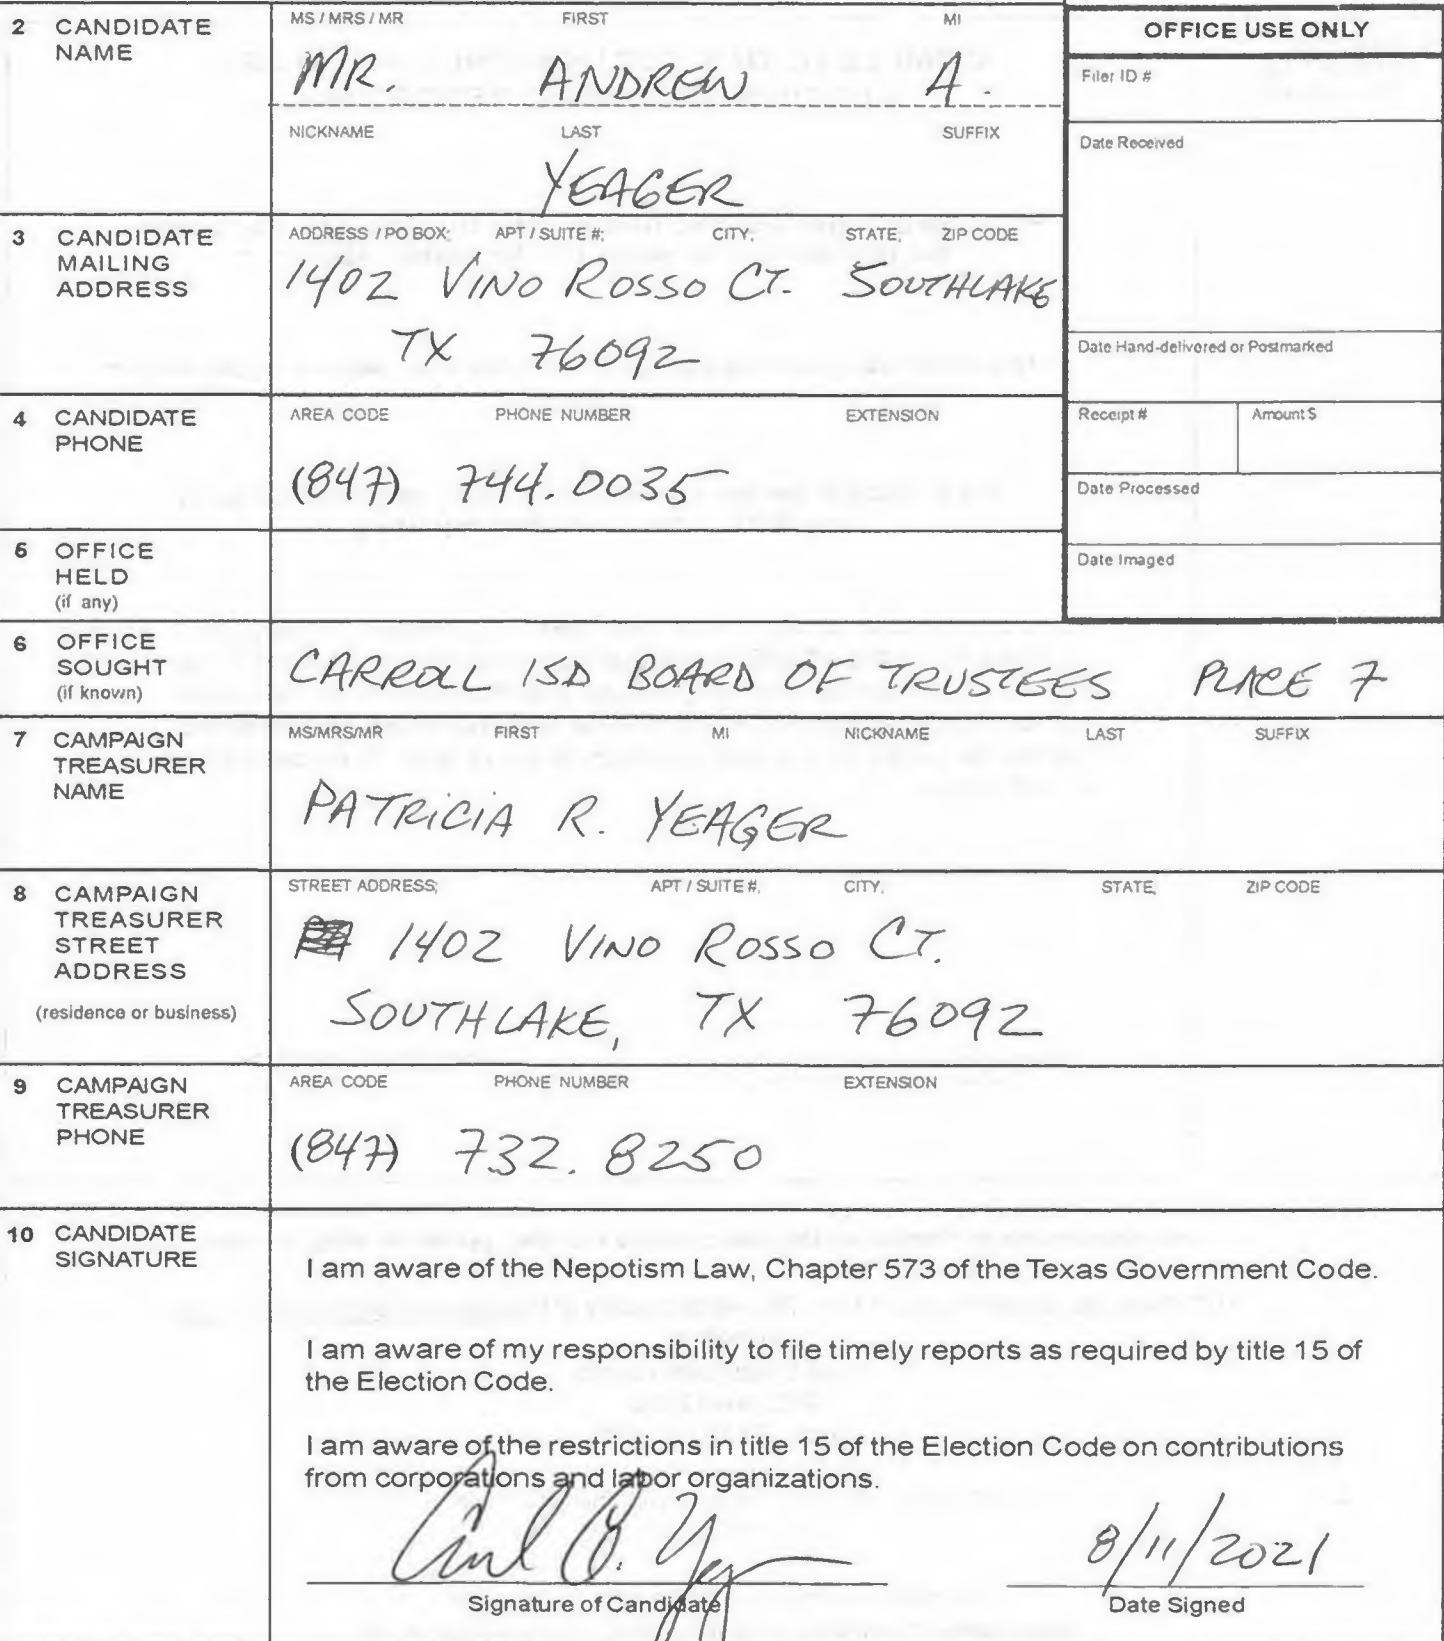 2 CANDIDATE NAME
MS / MRS / MR FIRST MI
MR. ANDREW A.
NICKNAME LAST SUFFIX
YEAGER
OFFICE USE ONLY
Filer ID #
Date Received
Date Hand-delivered or Postmarked
Receipt # Amount $
Date Processed
Date Imaged
3 CANDIDATE MAILING ADDRESS
ADDRESS / PO BOX; APT / SUITE #; CITY; STATE; ZIP CODE
1402 VINO ROSSO CT. SOUTHLAKE
TX 76092
4 CANDIDATE PHONE
AREA CODE PHONE NUMBER EXTENSION
(847) 744.0035
5 OFFICE HELD
(if any)
6 OFFICE SOUGHT
(if known)
CARROLL ISD BOARD OF TRUSTEES PLACE 7
7 CAMPAIGN TREASURER NAME
MS/MRS/MR FIRST MI NICKNAME LAST SUFFIX
PATRICIA R. YEAGER
8 CAMPAIGN TREASURER STREET ADDRESS
(residence or business)
STREET ADDRESS; APT / SUITE #; CITY; STATE; ZIP CODE
1402 VINO ROSSO CT.
SOUTHLAKE, TX 76092
9 CAMPAIGN TREASURER PHONE
AREA CODE PHONE NUMBER EXTENSION
(847) 732.8250
10 CANDIDATE SIGNATURE
I am aware of the Nepotism Law, Chapter 573 of the Texas Government Code.
I am aware of my responsibility to file timely reports as required by title 15 of
the Election Code.
I am aware of the restrictions in title 15 of the Election Code on contributions
from corporations and labor organizations.
8/11/2021
Signature of Candidate Date Signed